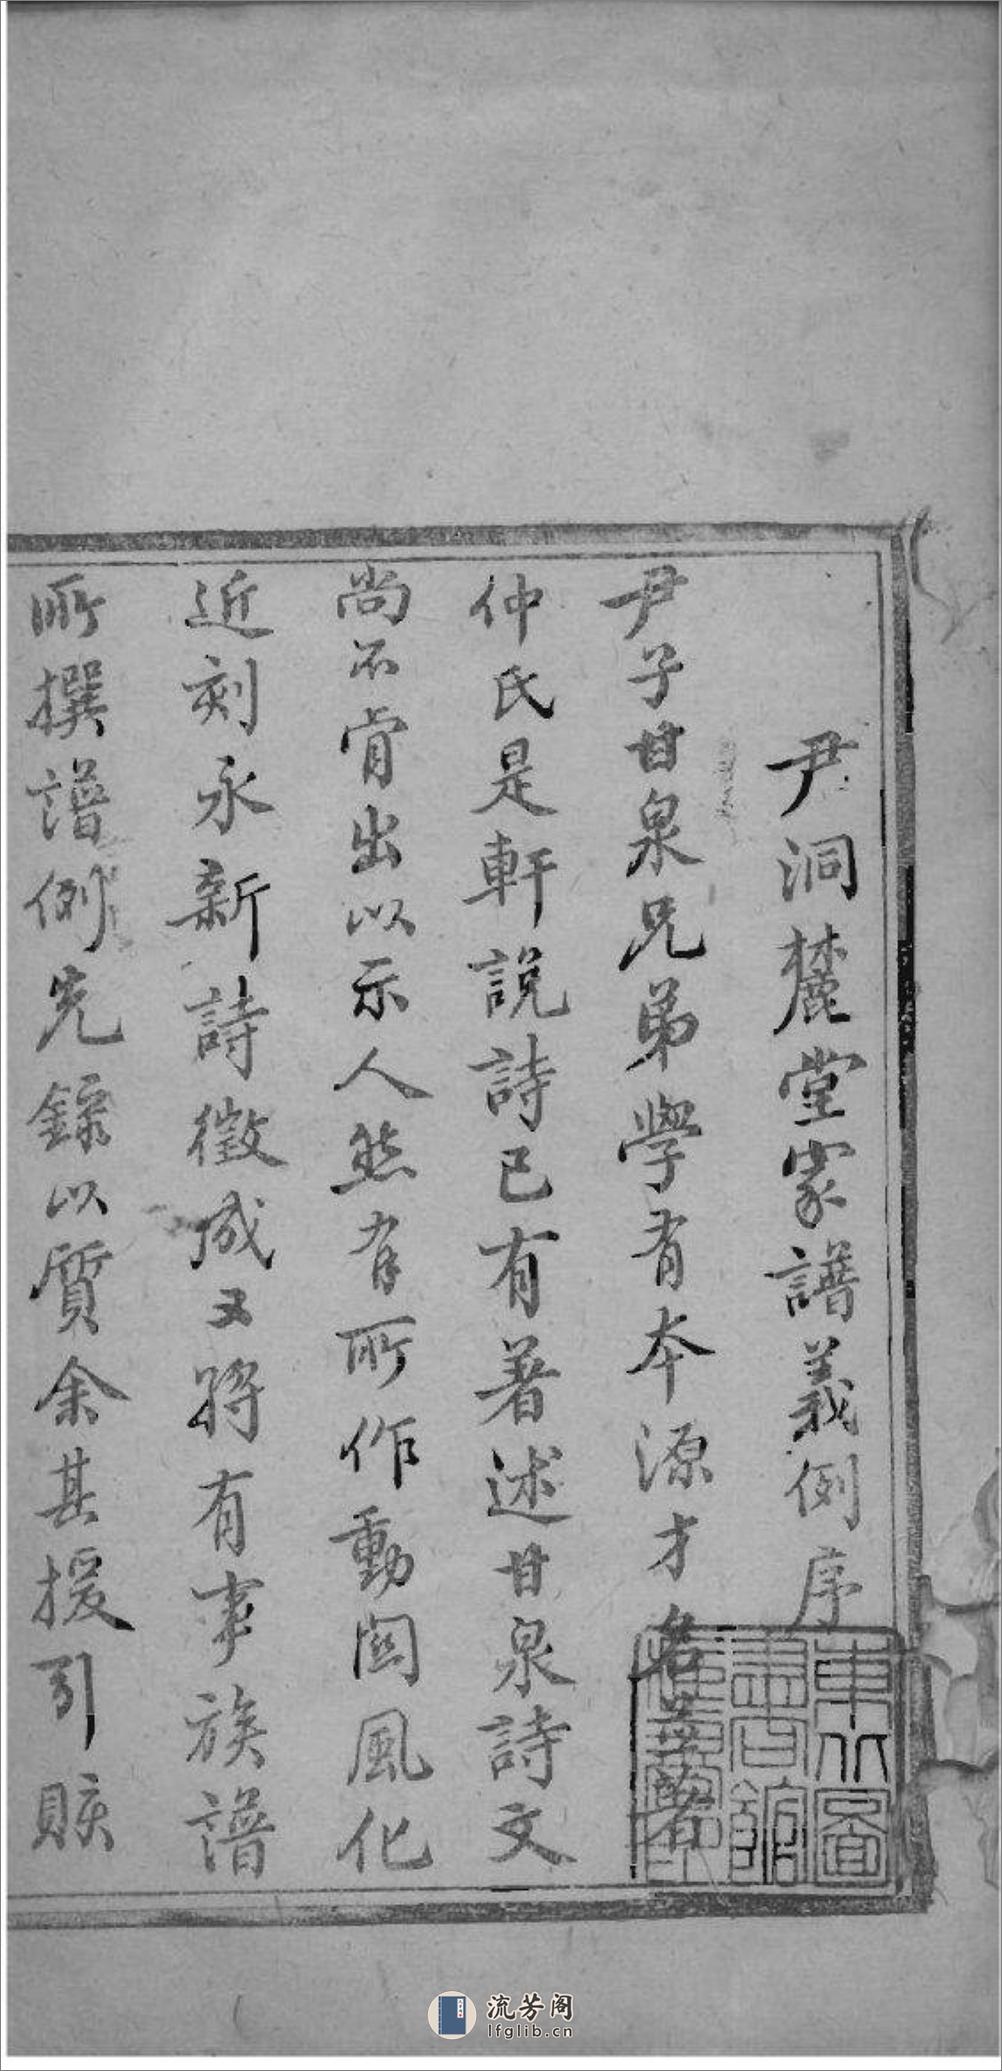 尹洞麓堂家譜義例序
尹子甘泉兄弟學有本源才名並著
仲氏是軒說詩已有著述甘泉詩文
尚不肯出以示人然有所作動関風化
近刻永新詩徵成又將有事族譜
所撰譜例先錄以質余其援引賅
東北圖
書館
流芳阁
lfglib.cn